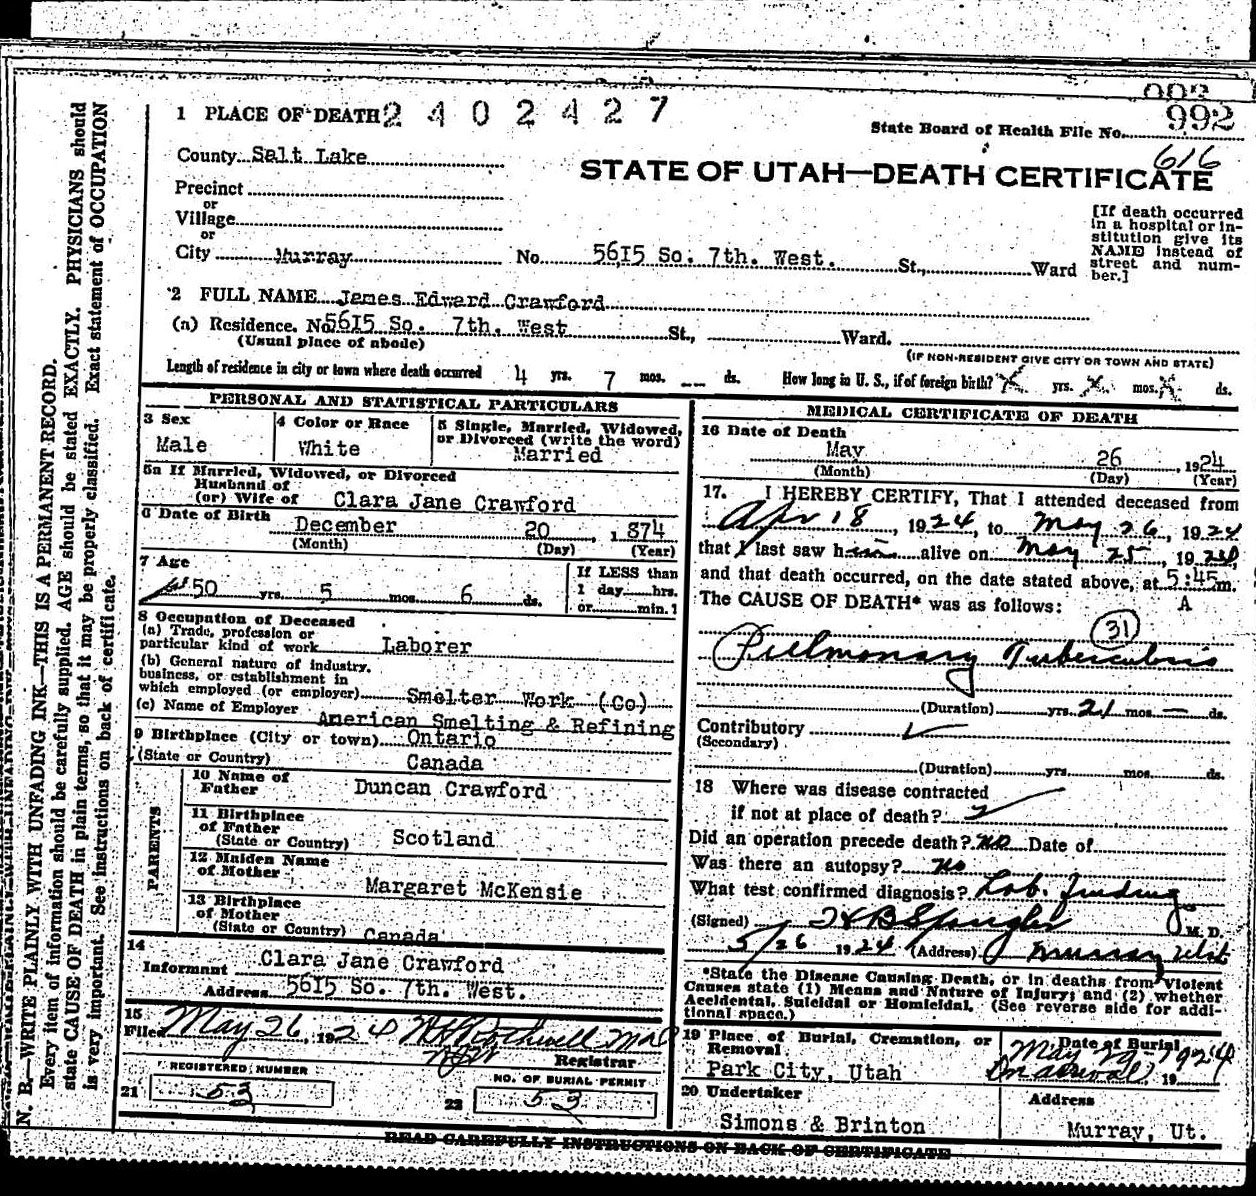 992
1 PLACE OF DEATH 2 4 0 2 4 2 7
State Board of Health File No. 992
616
County Salt Lake
STATE OF UTAH—DEATH CERTIFICATE
Precinct
or
Village
or
City Murray No. 56I5 So. 7th. West. St., Ward
[If death occurred
in a hospital or in-
stitution give its
NAME instead of
street and num-
ber.]
2 FULL NAME James Edward Crawford
(a) Residence. No. 56I5 So. 7th. West St., Ward.
(Usual place of abode)
(IF NON-RESIDENT GIVE CITY OR TOWN AND STATE)
Length of residence in city or town where death occurred 4 yrs. 7 mos. -- ds. How long in U. S., if of foreign birth? X yrs. X mos. X ds.
PERSONAL AND STATISTICAL PARTICULARS
3 Sex
Male
4 Color or Race
White
5 Single, Married, Widowed,
or Divorced (write the word)
Married
5a If Married, Widowed, or Divorced
Husband of
(or) Wife of Clara Jane Crawford
6 Date of Birth December 20, 1874
(Month) (Day) (Year)
7 Age
50 yrs. 5 mos. 6 ds.
If LESS than
1 day hrs.
or min.?
8 Occupation of Deceased
(a) Trade, profession or
particular kind of work Laborer
(b) General nature of industry,
business, or establishment in
which employed (or employer) Smelter Work (Co)
(c) Name of Employer
American Smelting & Refining
9 Birthplace (City or town) Ontario
(State or Country) Canada
PARENTS
10 Name of
Father Duncan Crawford
11 Birthplace
of Father
(State or Country) Scotland
12 Maiden Name
of Mother
Margaret McKensie
13 Birthplace
of Mother
(State or Country) Canada
14
Informant Clara Jane Crawford
Address 56I5 So. 7th. West.
15
Filed May 26, 1924
Registrar
REGISTERED NUMBER
21 53
NO. OF BURIAL PERMIT
22 53
MEDICAL CERTIFICATE OF DEATH
16 Date of Death
May 26, 1924
(Month) (Day) (Year)
17. I HEREBY CERTIFY, That I attended deceased from
Apr 18, 1924, to May 26, 1924
that I last saw him alive on May 25, 1924,
and that death occurred, on the date stated above, at 5:45 m.
A
The CAUSE OF DEATH* was as follows:
31
Pulmonary Tuberculosis
(Duration) yrs. 21 mos. — ds.
Contributory
(Secondary)
(Duration) yrs. mos. ds.
18 Where was disease contracted
if not at place of death? ?
Did an operation precede death? No Date of
Was there an autopsy? No
What test confirmed diagnosis? Lab. finding
(Signed) M. D.
5/26 1924 (Address) Murray Utah
*State the Disease Causing Death, or in deaths from Violent
Causes state (1) Means and Nature of Injury; and (2) whether
Accidental, Suicidal or Homicidal. (See reverse side for addi-
tional space.)
19 Place of Burial, Cremation, or
Removal
Park City, Utah
Date of Burial
May 29-1924
19
20 Undertaker
Simons & Brinton
Address
Murray, Ut.
READ CAREFULLY INSTRUCTIONS ON BACK OF CERTIFICATE
N. B.—WRITE PLAINLY WITH UNFADING INK—THIS IS A PERMANENT RECORD.
Every item of information should be carefully supplied. AGE should be stated EXACTLY. PHYSICIANS should
state CAUSE OF DEATH in plain terms, so that it may be properly classified. Exact statement of OCCUPATION
is very important. See instructions on back of certificate.